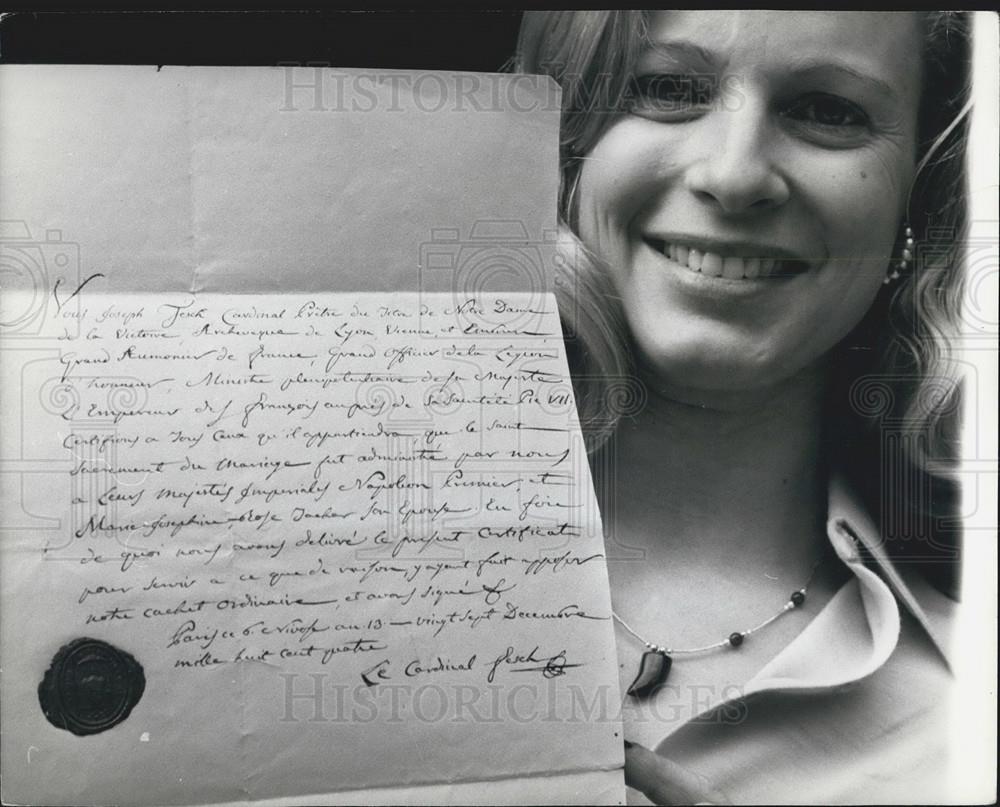 HISTORIC IMAGES
Nous Joseph Fesch Cardinal Prêtre du Titre de Notre Dame
de la Victoire, Archeveque de Lyon Vienne, et
Grand Aumonier de france, Grand officier de la Legion
d'honneur, Ministre plenipotentiaire de Sa Majesté
L'Empereur des françois auprès de Sa Sainteté Pie VII.
Certifions a Tous Ceux qu'il appartiendra, que le saint
Sacrement du Mariage fut administré par nous
a Leurs Majestés Imperiales Napoleon Premier, et
Marie Josephine, Rose Tacher Son Epouse. En foi
de quoi nous avons délivré le present Certificat
pour servir a ce que de raison, y ayant fait apposer
notre cachet ordinaire, et avons signé
Paris ce 6 Nivose an 13 — vingt Sept Decembre
mille huit cent quatre
Le Cardinal Fesch
HISTORIC IMAGES